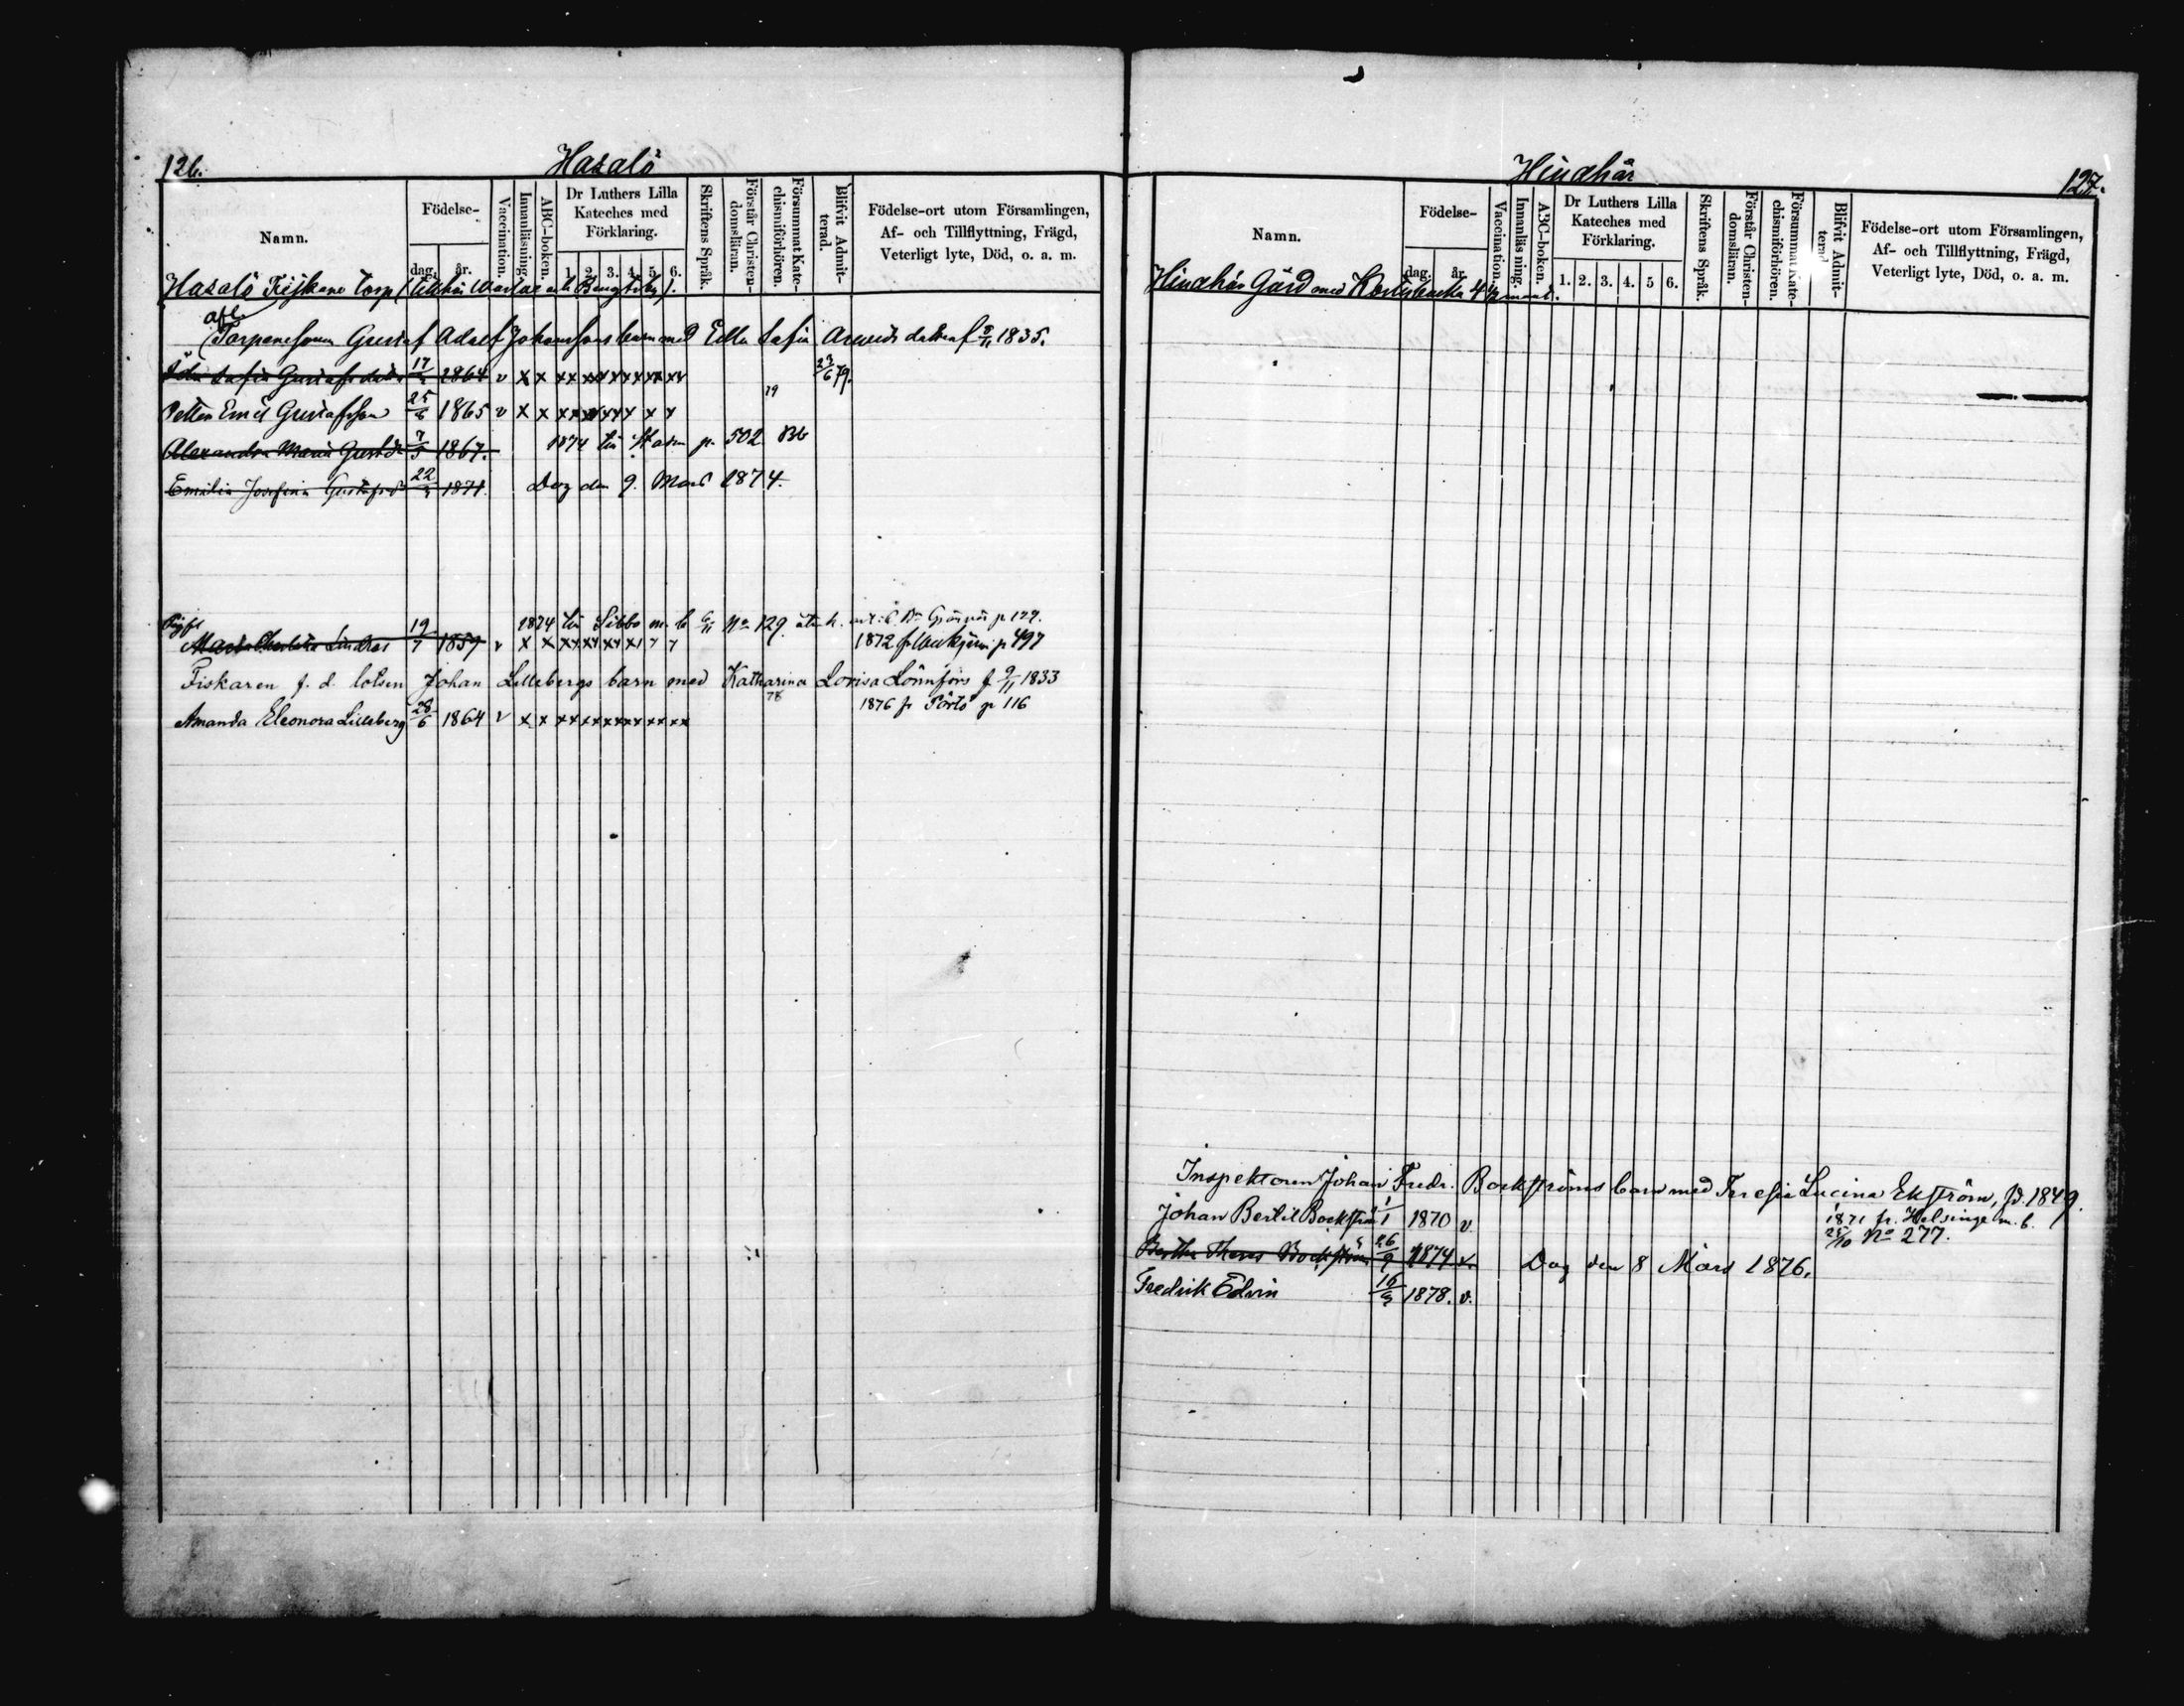 126.
Hasalö
Namn.
Födelse-
dag.
år.
Vaccination.
Innanläsning.
ABC-boken.
Dr Luthers Lilla
Kateches med
Förklaring.
1. 2. 3. 4. 5. 6.
Skriftens Språk.
Förstår Christen-
domsläran.
Försummat Kate-
chismiförhören.
Blifvit Admit-
terad.
Födelse-ort utom Församlingen,
Af- och Tillflyttning, Frägd,
Veterligt lyte, Död, o. a. m.
Hasalö Fiskare Torp
afl.
Torparesonen Gustaf Adolf Johanssons barn med Ella Sofia Arvids dotter f 1835.
Sofia Gustafs dotter 17 1864 v x x xx xx xx xx xx xx 23/6 79.
79
Petter Emil Gustafsson 25/6 1865 v x x xx xx xx x x x
Alexandra Maria Gust.dr 7/5 1867. 1874 till p. 502 Bb
Emilia Josefina Gustafsd 22 1871. Dog den 9. Mars 1874.
Pigf 1874 till Sibbo m. b No 129 p 177.
Maria Charlotta Lindros 19/7 1859 v x x xx xx xx x 1872 fr p 497
Fiskaren f. d. lotsen Johan Lillebergs barn med Katharina Lovisa Lönnfors f 9/11 1833
78
1876 fr Pörtö p 116
Amanda Eleonora Lilleberg 28/6 1864 v x x xx xx xx xx xx xx
Hindhår
127.
Namn.
Födelse-
dag.
år.
Vaccination.
Innanläsning.
ABC-boken.
Dr Luthers Lilla
Kateches med
Förklaring.
1. 2. 3. 4. 5 6.
Skriftens Språk.
Förstår Christen-
domsläran.
Försummat Kate-
chismiförhören.
Blifvit Admit-
terad
Födelse-ort utom Församlingen,
Af- och Tillflyttning, Frägd,
Veterligt lyte, Död, o. a. m.
Hindhår Gård med
Inspektoren Johan Fredr. Bockströms barn med Teresia Lucina Ekström, fd. 1849.
Johan Bertil Bockström 1/1 1870 v. 1871 fr. Helsinge m. b.
25/10 No 277.
Bertha Theres Bockström 26/9 1874 v. Dog den 8 Mars 1876.
Fredrik Edvin 16/9 1878. v.